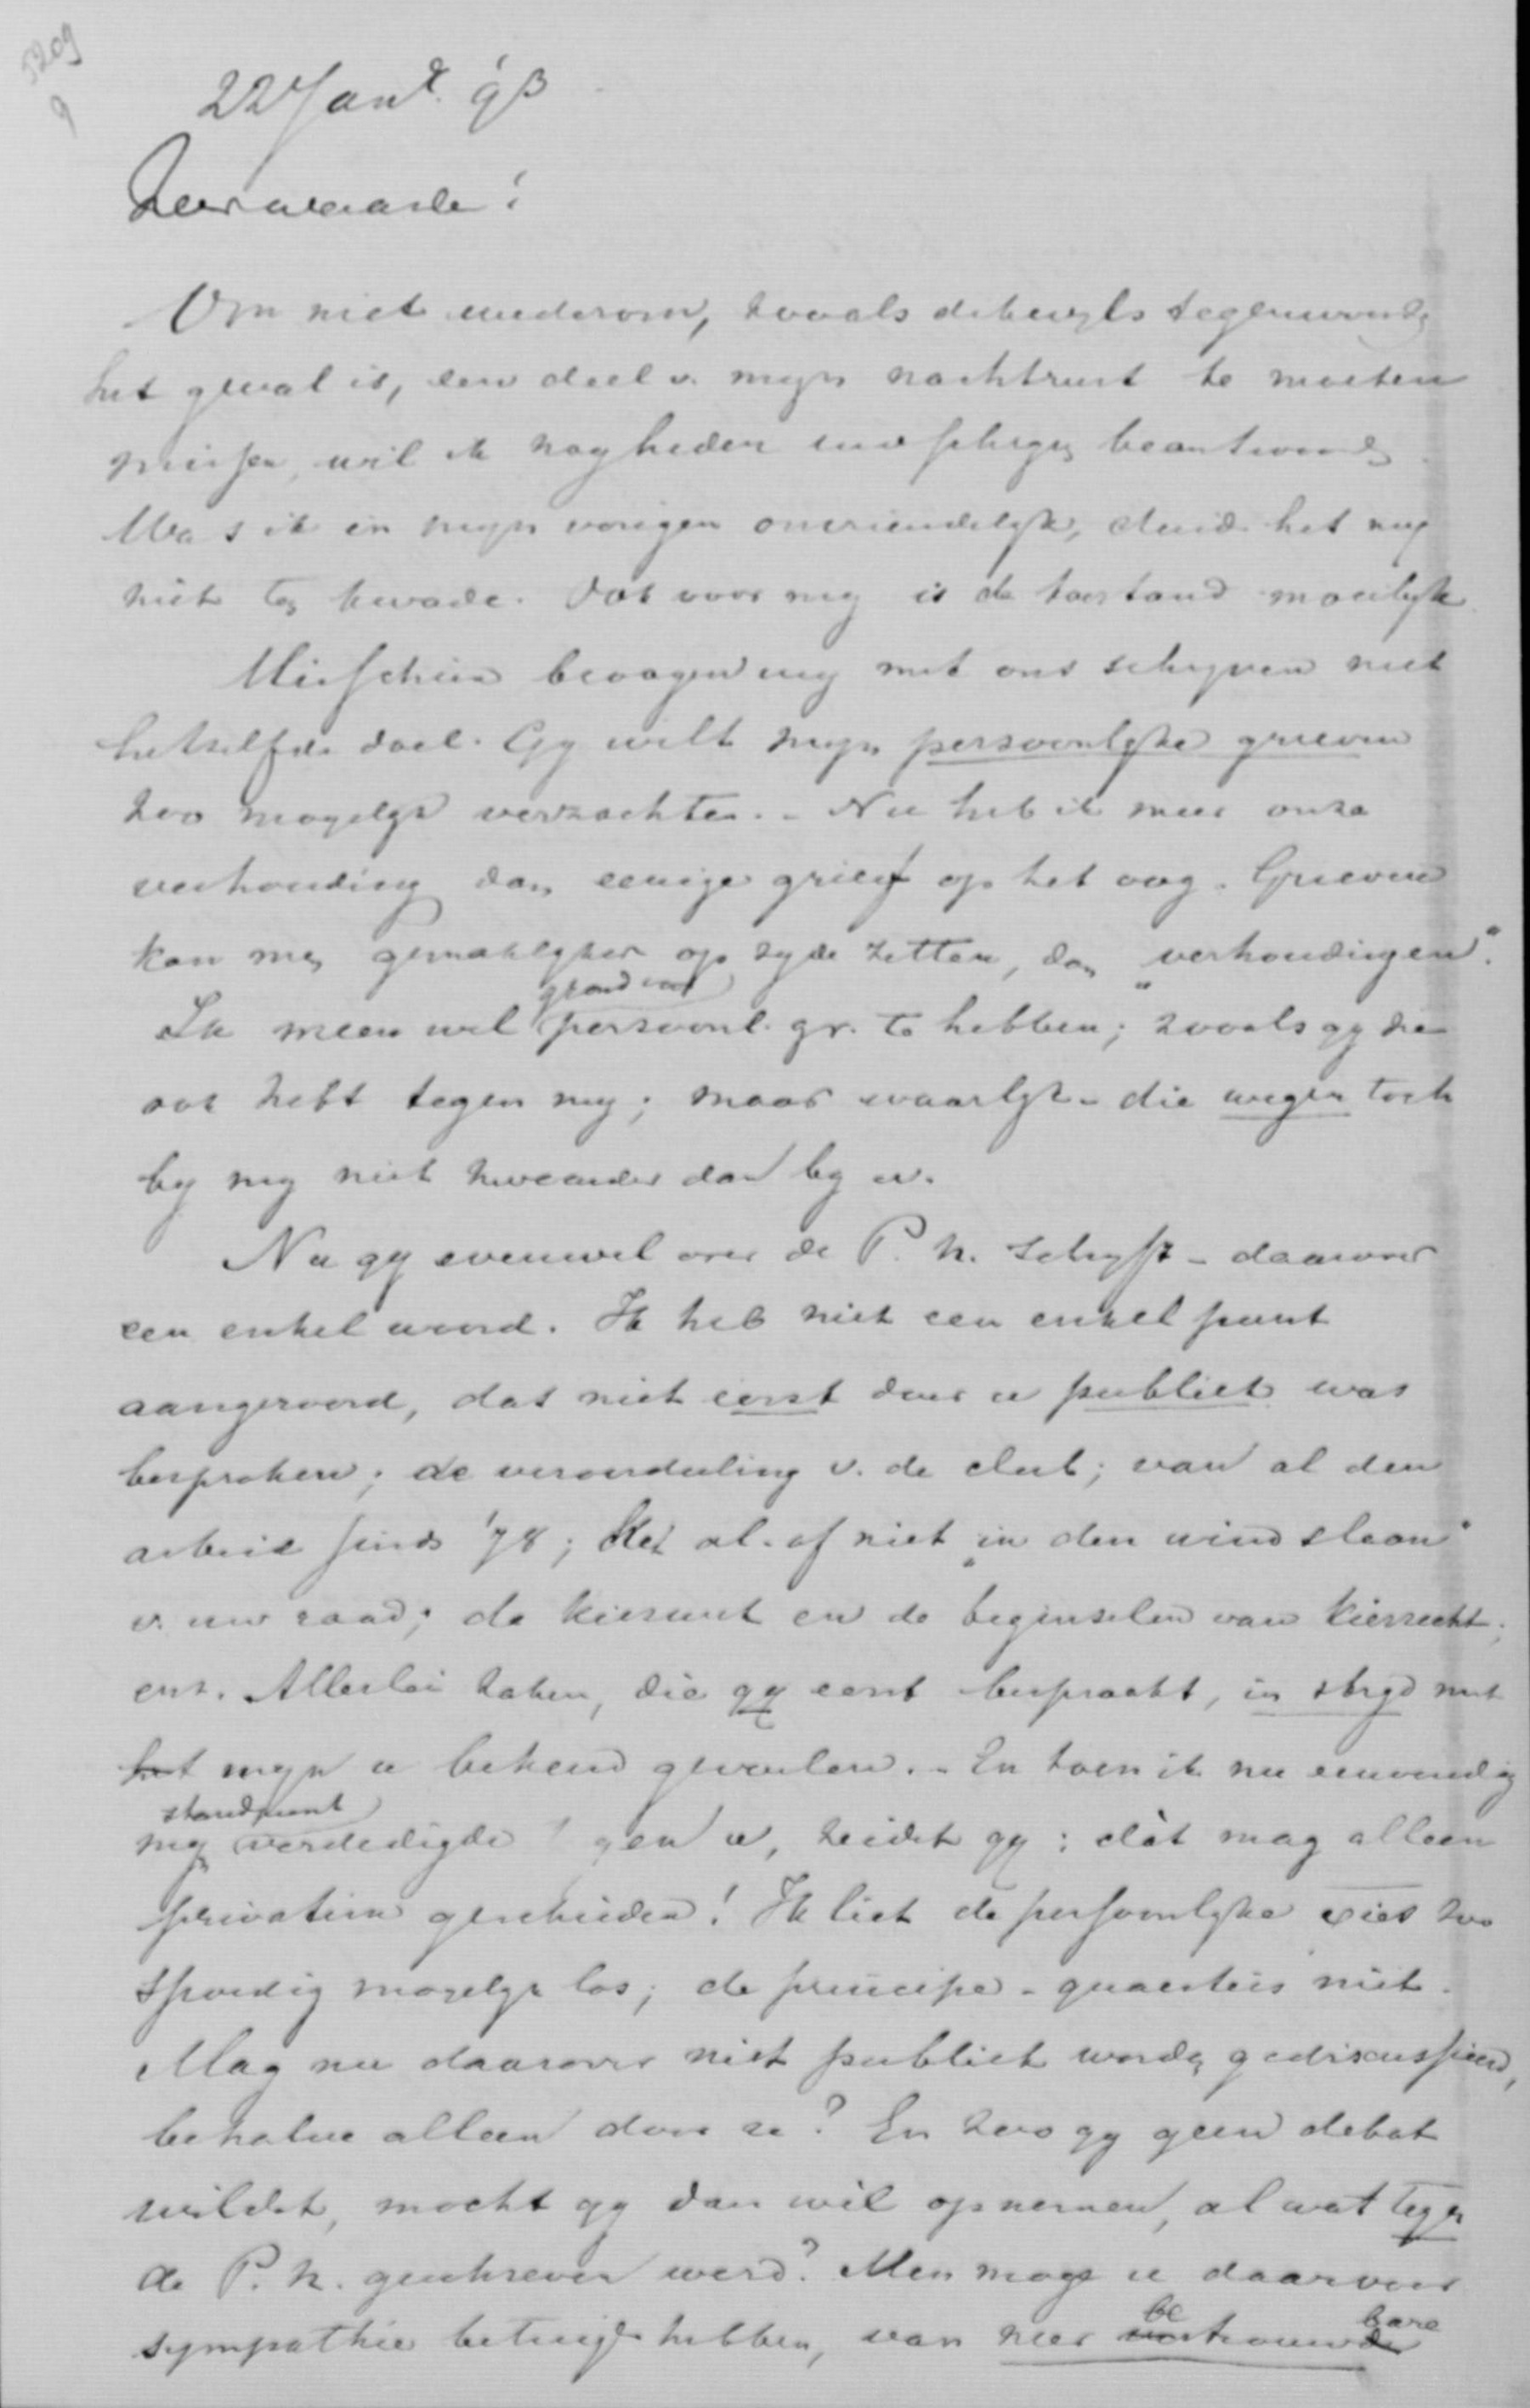 5209
9
22 Jan. 93
Zeer waarde!
Om niet wederom, zooals dikwyls tegenwoordig
het geval is, een deel v. myn nachtrust te moeten
missen, wil ik nog heden uw schryven beantwoorden.
Was ik in myn vorigen onvriendelyk, duid het my
niet ten kwade. Ook voor my is de toestand moeilyk.
Misschien beoogen wy met ons schryven niet
hetzelfde doel. Gy wilt myn persoonlyke grieven
zoo mogelyk verzachten. - Nu heb ik meer onze
verhouding dan eenige grief op het oog. Grieven
kan men gemakkelyker op zyde zetten, dan „verhoudingen".
grond voor
Ik meen wel persoonl. gr. te hebben; zooals gy die
ook hebt tegen my; maar waarlyk - die wegen toch
by my niet zwaarder dan by u.
Nu gy evenwel over de P. K. schryft - daarover
een enkel woord. Ik heb niet een enkel punt
aangeroerd, dat niet eerst door u publiek was
besproken; de veroordeeling v. de club; van al den
arbeid sinds '78; het al- of niet „in den wind slaan"
v. uw raad; de kieswet en de beginselen van kiesrecht;
enz. Allerlei zaken, die gy eerst bespraakt, in stryd met
het myn u bekend gevoelen. - En toen ik nu eenvoudig
standpunt
myn verdedigde gen u, zeidet gy: dàt mag alleen
privatim geschieden! Ik liet de persoonlyke zoo
spoedig mogelyk los; de principe-quaesties niet.
Mag nu daarover niet publiek worden gediscussieerd,
behalve alleen door u? En zoo gy geen debat
wildet, mocht gy dan wèl opnemen, al wat tegen
de P. K. geschreven werd? Men moge u daarvoor
be bare
sympathie betuigd hebben, van zeer vertrouwde